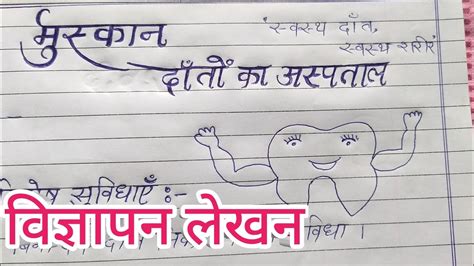 मुस्कान
स्वस्थ दाँत,
स्वस्थ शरीर
दाँतों का अस्पताल
सुविधाएँ :-
विज्ञापन लेखन